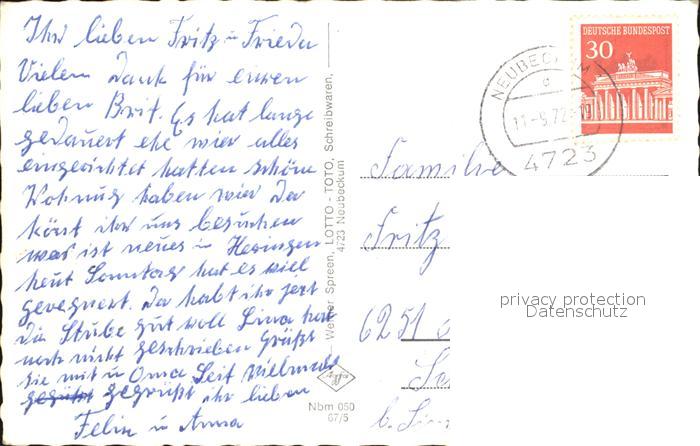 Ihr lieben Fritz u Frieda
Vielen Dank für euren
lieben Brif. Es hat lange
gedauert ehe wier alles
eingerichtet hatten schöne
Wohnug haben wier Da
könt ihr uns besuchen
was ist neues in Heringen
heut Sonntag hat es viel
geregnert. Da habt ihr jezt
die Stube gut voll Lina hat
noch nicht geschrieben Grüßt
sie mit u Oma Seit vielmals
gegrüßt ihr lieben
Felix u Anna
Werner Spreen, LOTTO - TOTO, Schreibwaren,
4723 Neubeckum
Agfa
Nbm 050
67/5
DEUTSCHE BUNDESPOST
30
NEUBECKUM
d
11-9.72
4723
Familie
Fritz
6251
b. Lim
privacy protection
Datenschutz